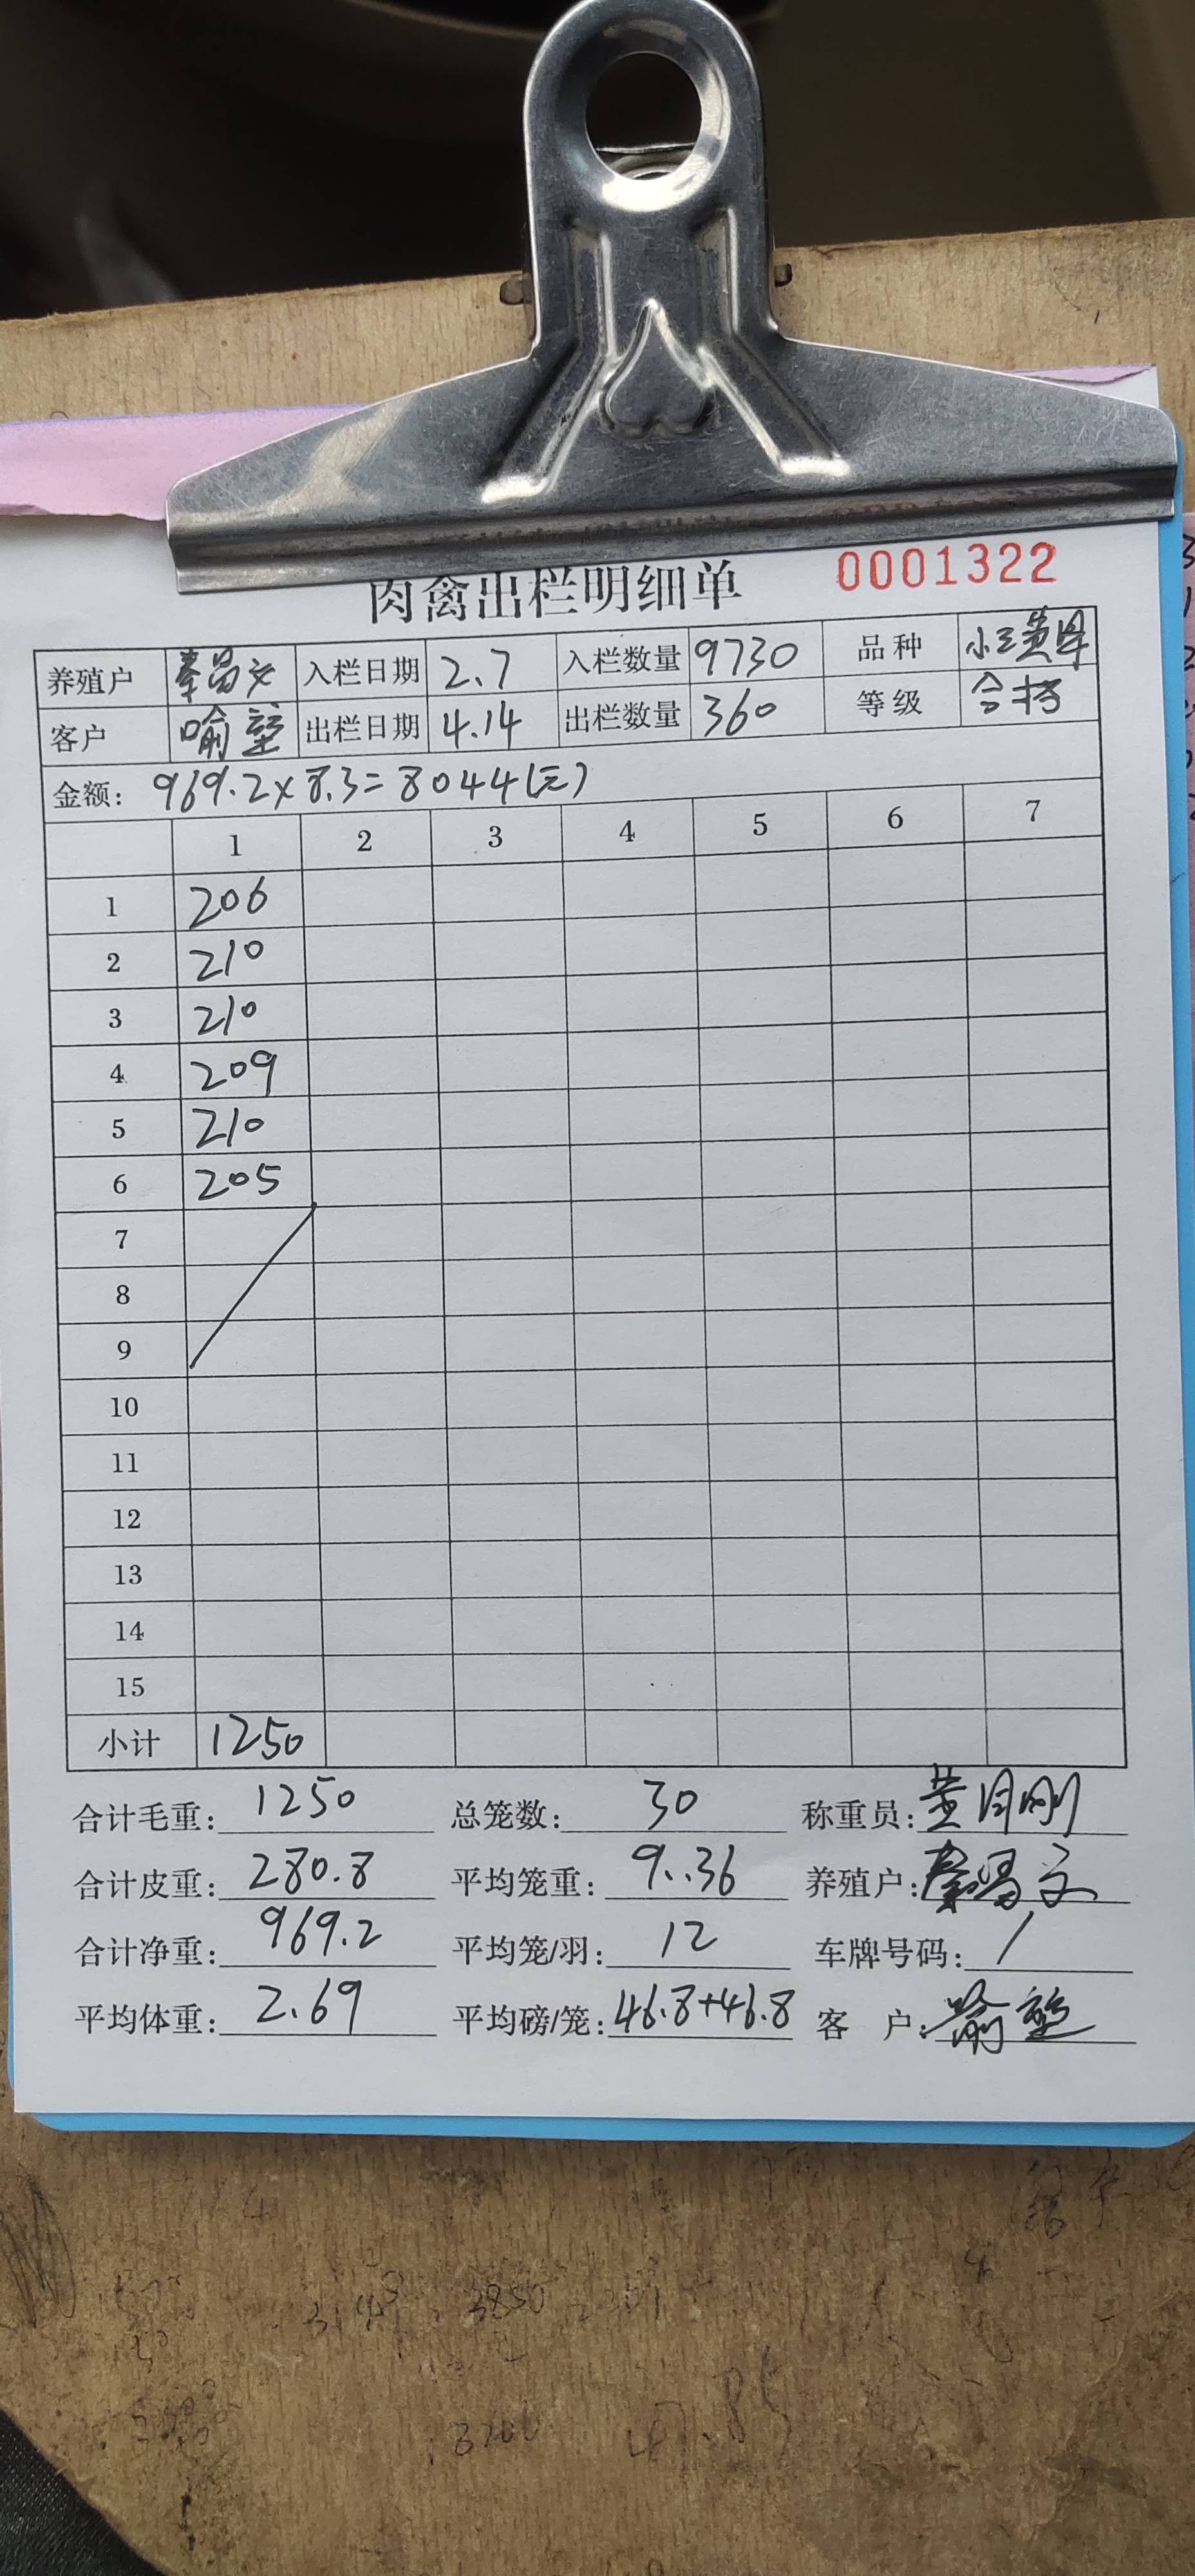 肉禽出栏明细单 0001322
养殖户 秦昌文 入栏日期 2.7 入栏数量 9730 品种 小三黄
客户 喻堃 出栏日期 4.14 出栏数量 360 等级 合格
金额: 969.2×8.3=8044(元)
1 2 3 4 5 6 7
1 206
2 210
3 210
4 209
5 210
6 205
7
8
9
10
11
12
13
14
15
小计 1250
合计毛重: 1250 总笼数: 30 称重员: 黄月刚
合计皮重: 280.8 平均笼重: 9.36 养殖户: 秦昌文
合计净重: 969.2 平均笼/羽: 12 车牌号码: /
平均体重: 2.69 平均磅/笼: 46.8+46.8 客 户: 喻堃